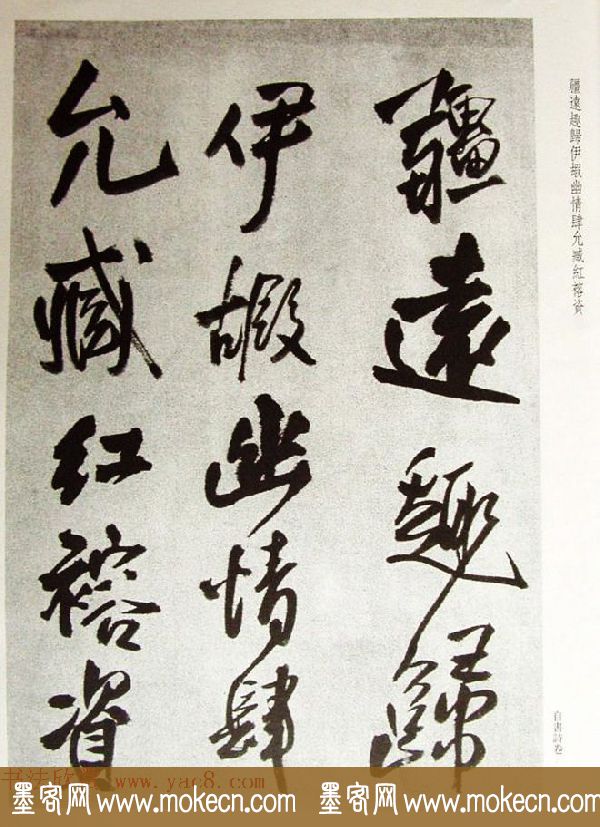 疆遠趣歸伊嘏幽情肆允臧紅裕資
疆遠趣歸
伊嘏幽情肆
允臧紅裕資
自書詩卷
书法欣赏 www.yac8.com
墨客网 www.mokecn.com 墨客网 www.mokecn.com